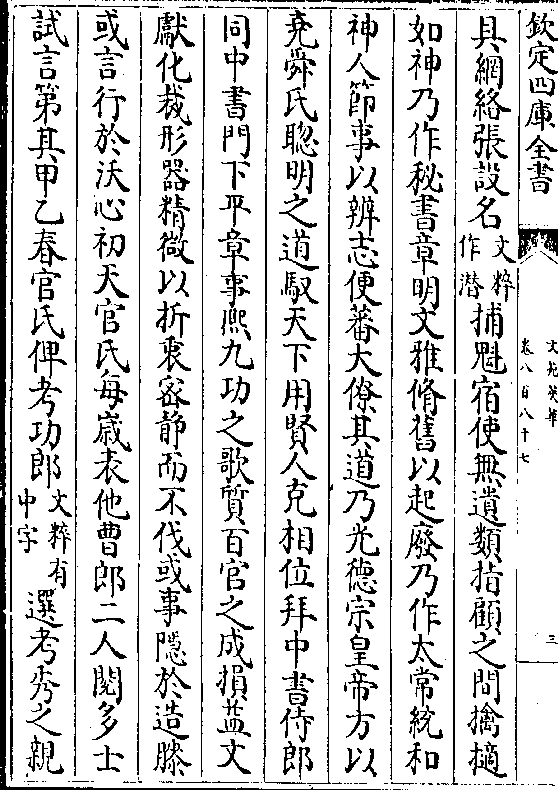 欽定四庫全書
文苑英華
卷八百八十七
三
具網絡張設名文粹作潜捕魁宿使無遺類指顧之間擒擿
如神乃作秘書章明文雅脩舊以起廢乃作太常統和
神人節事以辨志便蕃大僚其道乃光德宗皇帝方以
堯舜氏聰明之道馭天下用賢人克相位拜中書侍郎
同中書門下平章事熈九功之歌質百官之成損益文
獻化裁形器精微以折衷密静而不伐或事隱於造膝
或言行於沃心初天官氏每歲表他曹郎二人閲多士
試言第其甲乙春官氏俾考功郎文粹有中字選考秀之親